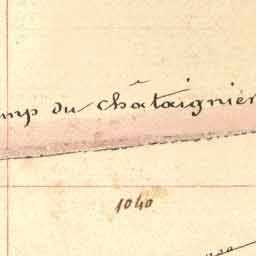 mp du châtaignier
1040